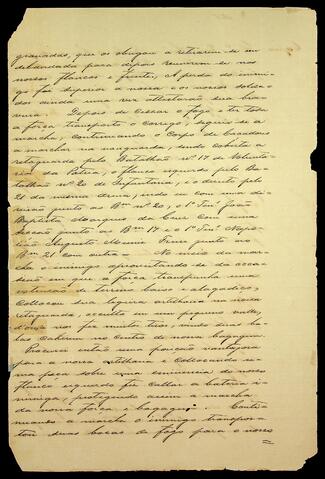 granadas, que os obrigou a retirarem-se em
debandada para depois reunirem-se nos
nossos flancos e frente. A perda do inimi-
go foi superior a nossa e os nossos solda-
dos ainda uma vez attestarão sua bra-
vura. Depois de cessar o fogo e ter toda
a força transposto o corrego, seguio-se a
marcha, continuando o Corpo de Caçadores
a marchar na vanguarda, sendo coberta a
retaguarda pelo Batalhão nº 17 de Volunta-
rios da Patria, o flanco esquerdo pelo Ba-
talhão nº 20 de Infantaria, e o direito pelo
21 da mesma arma, indo eu com uma di-
visão junto ao Bm nº 20, o 1º Tene João
Baptista Marques da Cruz com uma
secção junto ao Bm 17 e o 1º Tene Napo-
leão Augusto Muniz Freire junto ao
Bm 21 com outra. No meio da mar-
cha o inimigo aproveitando-se da occa-
sião em que a força transpunha uma
extensão de terreno baixo e alagadiço,
collocou sua ligeira artilharia na nossa
retaguarda, occulta em um pequeno valle,
d'onde nos fez muitos tiros, vindo duas ba-
las cahirem no centro de nossa bagagem.
Procurei então uma posição vantajosa
para a nossa artilharia e collocando u-
ma peça sobre uma eminencia do nosso
flanco esquerdo fiz callar a bateria i-
nimiga, protegendo assim a marcha
da nossa força e bagagem. Conti-
nuando a marcha o inimigo transpor-
tou duas bocas de fogo para o nosso